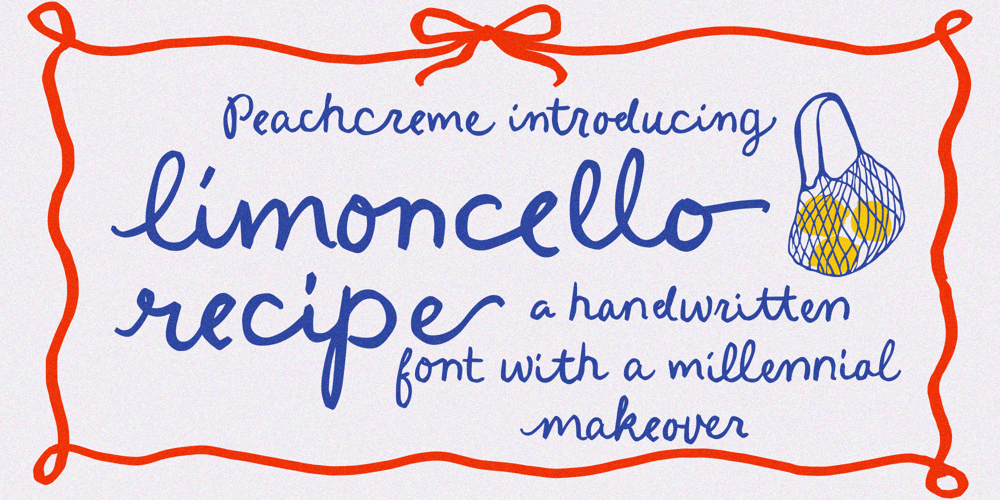 Peachcreme introducing
limoncello
recipe a handwritten
font with a millennial
makeover